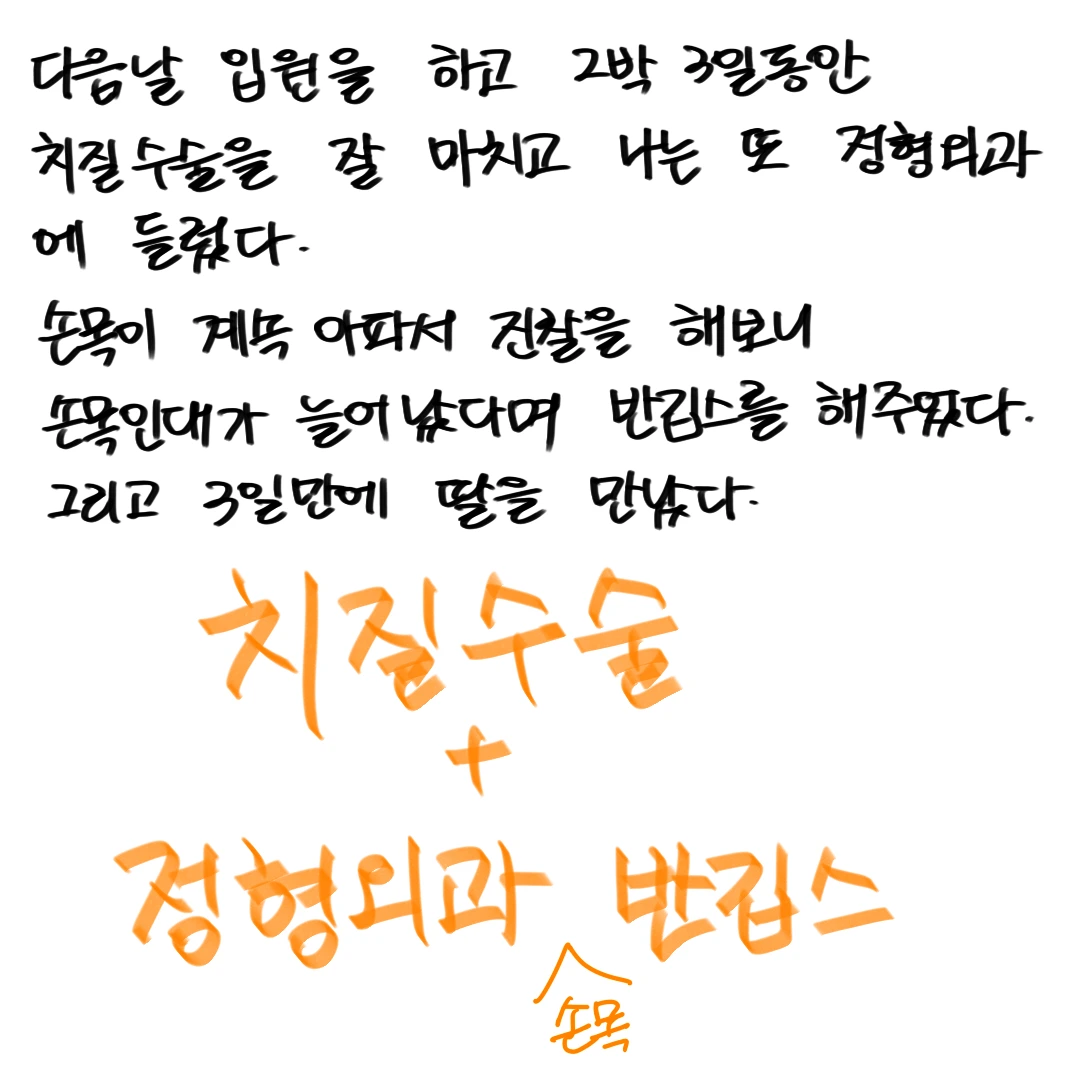 다음날 입원을 하고 2박 3일동안
치질수술을 잘 마치고 나는 또 정형외과
에 들렀다.
손목이 계속 아파서 진찰을 해보니
손목인대가 늘어났다며 반깁스를 해주었다.
그리고 3일만에 딸을 만났다.
치질수술
+
정형외과 반깁스
손목